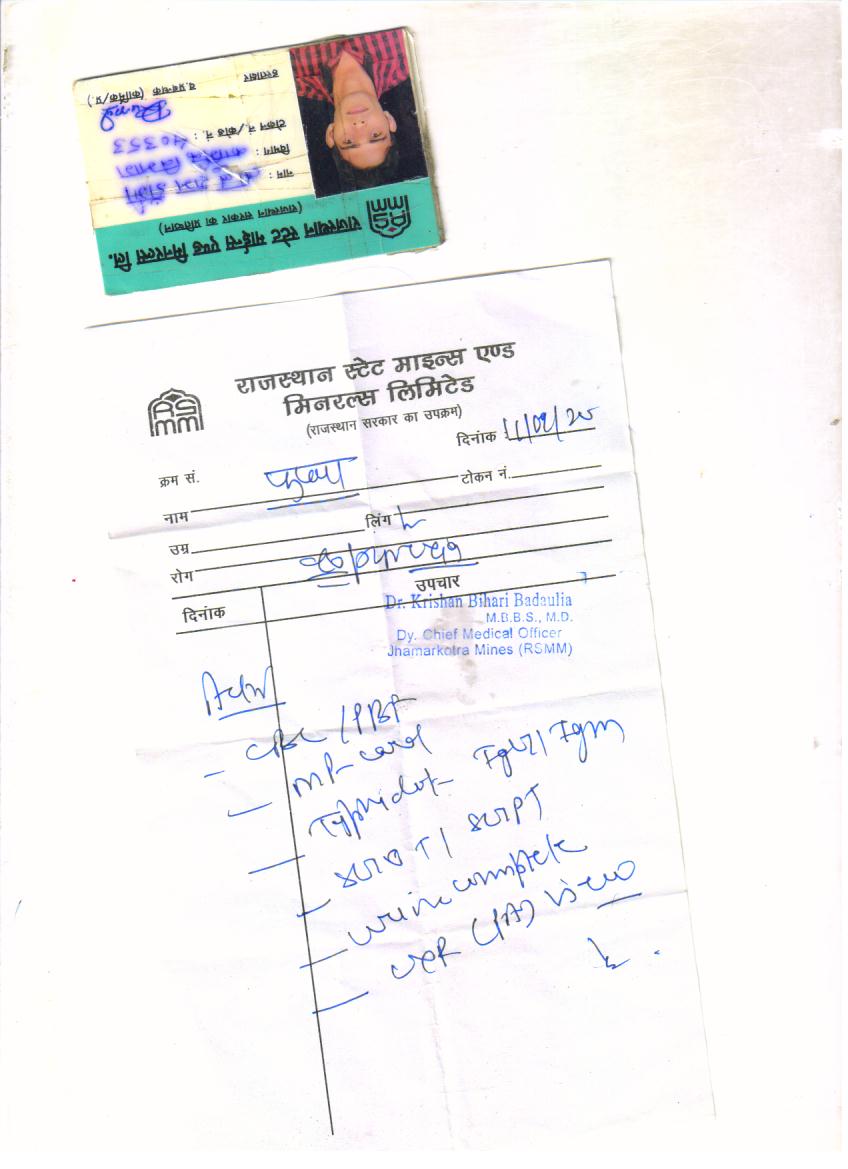 राजस्थान स्टेट माईन्स एण्ड मिनरल्स लि.
(राजस्थान सरकार का प्रतिष्ठान)
नाम :
विभाग :
टोकन नं./कोड नं. : 40353
व.प्रबन्धक (कार्मिक/प्र.)
हस्ताक्षर
RSMM
राजस्थान स्टेट माइन्स एण्ड
मिनरल्स लिमिटेड
(राजस्थान सरकार का उपक्रम)
दिनांक 11/02/20
क्रम सं. टोकन नं.
नाम
उम्र लिंग
रोग
दिनांक उपचार
Dr. Krishan Bihari Badaulia
M.B.B.S., M.D.
Dy. Chief Medical Officer
Jhamarkotra Mines (RSMM)
Adv
- CBC / PBF
- MP card
- Typhidot - IgG / IgM
- SGOT / SGPT
- urine complete
- CXR (PA) view